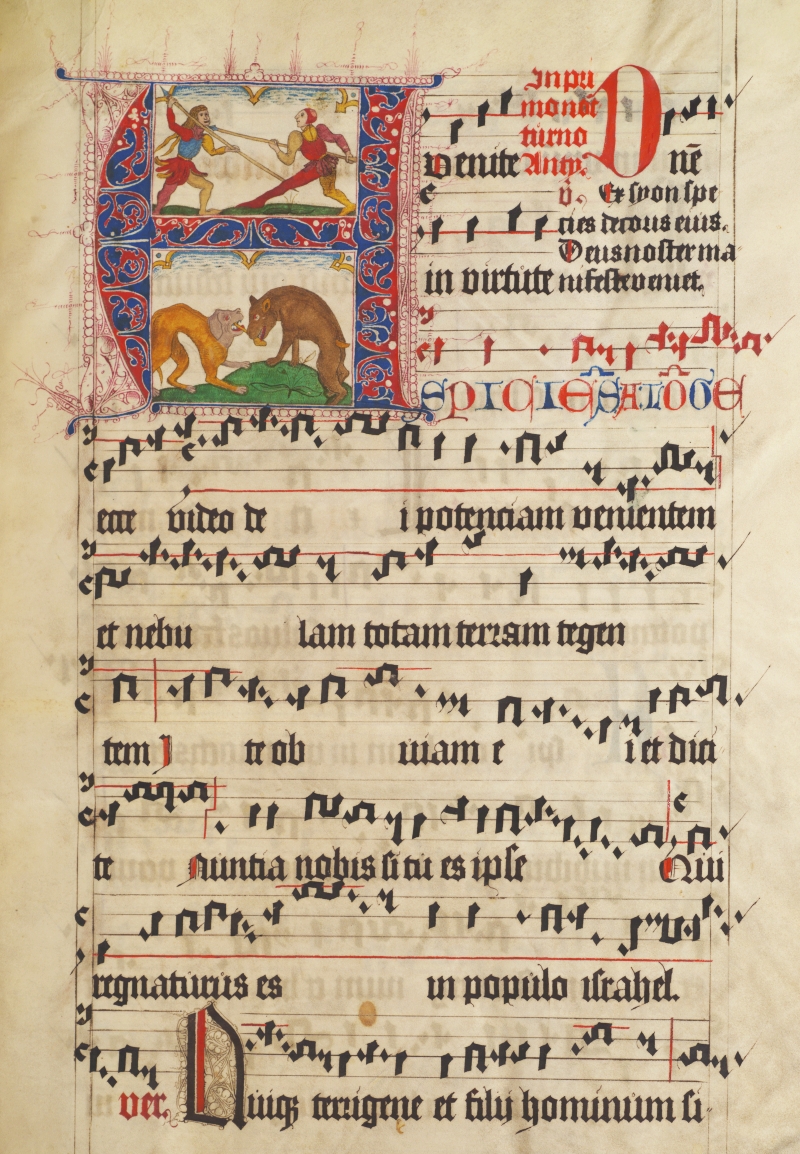 In pri
mo noct
turno
Anty.
Venite Dne
v. Ex syon spe
cies decoris eius.
Deus noster ma
in virtute nifeste veniet.
ASPICIENS A LO͞GE
ecce video de i potenciam venientem
et nebu lam totam terram tegen
tem I te ob uiam e i et dici
te Nuntia nobis si tu es ipse Qui
regnaturus es in populo israhel.
ver. Quiq terrigene et filij hominum si-